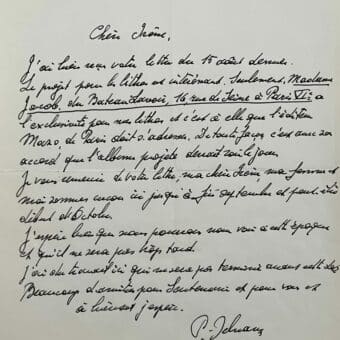 Chère Irène,
J'ai bien reçu votre lettre du 15 août dernier.
Le projet pour la litho est intéressant. Seulement, Madame
Jacob, du Bateau Lavoir, 16, rue de Seine à Paris VIe a
l'exclusivité pour mes lithos et c'est à elle que l'éditeur
de Paris doit s'adresser. De toute façon c'est avec son
accord que l'album projeté devrait voir le jour.
Je vous remercie de votre lettre, ma chère Irène, ma femme et
moi sommes encore ici jusqu'à fin septembre et peut-être
début d'Octobre.
J'espère bien que nous pourrons nous voir à cette époque
et qu'il ne sera pas trop tard.
J'ai du travail ici qui ne sera pas terminé avant cette date
Beaucoup d'amitiés pour et pour vous et
à bientôt j'espère.